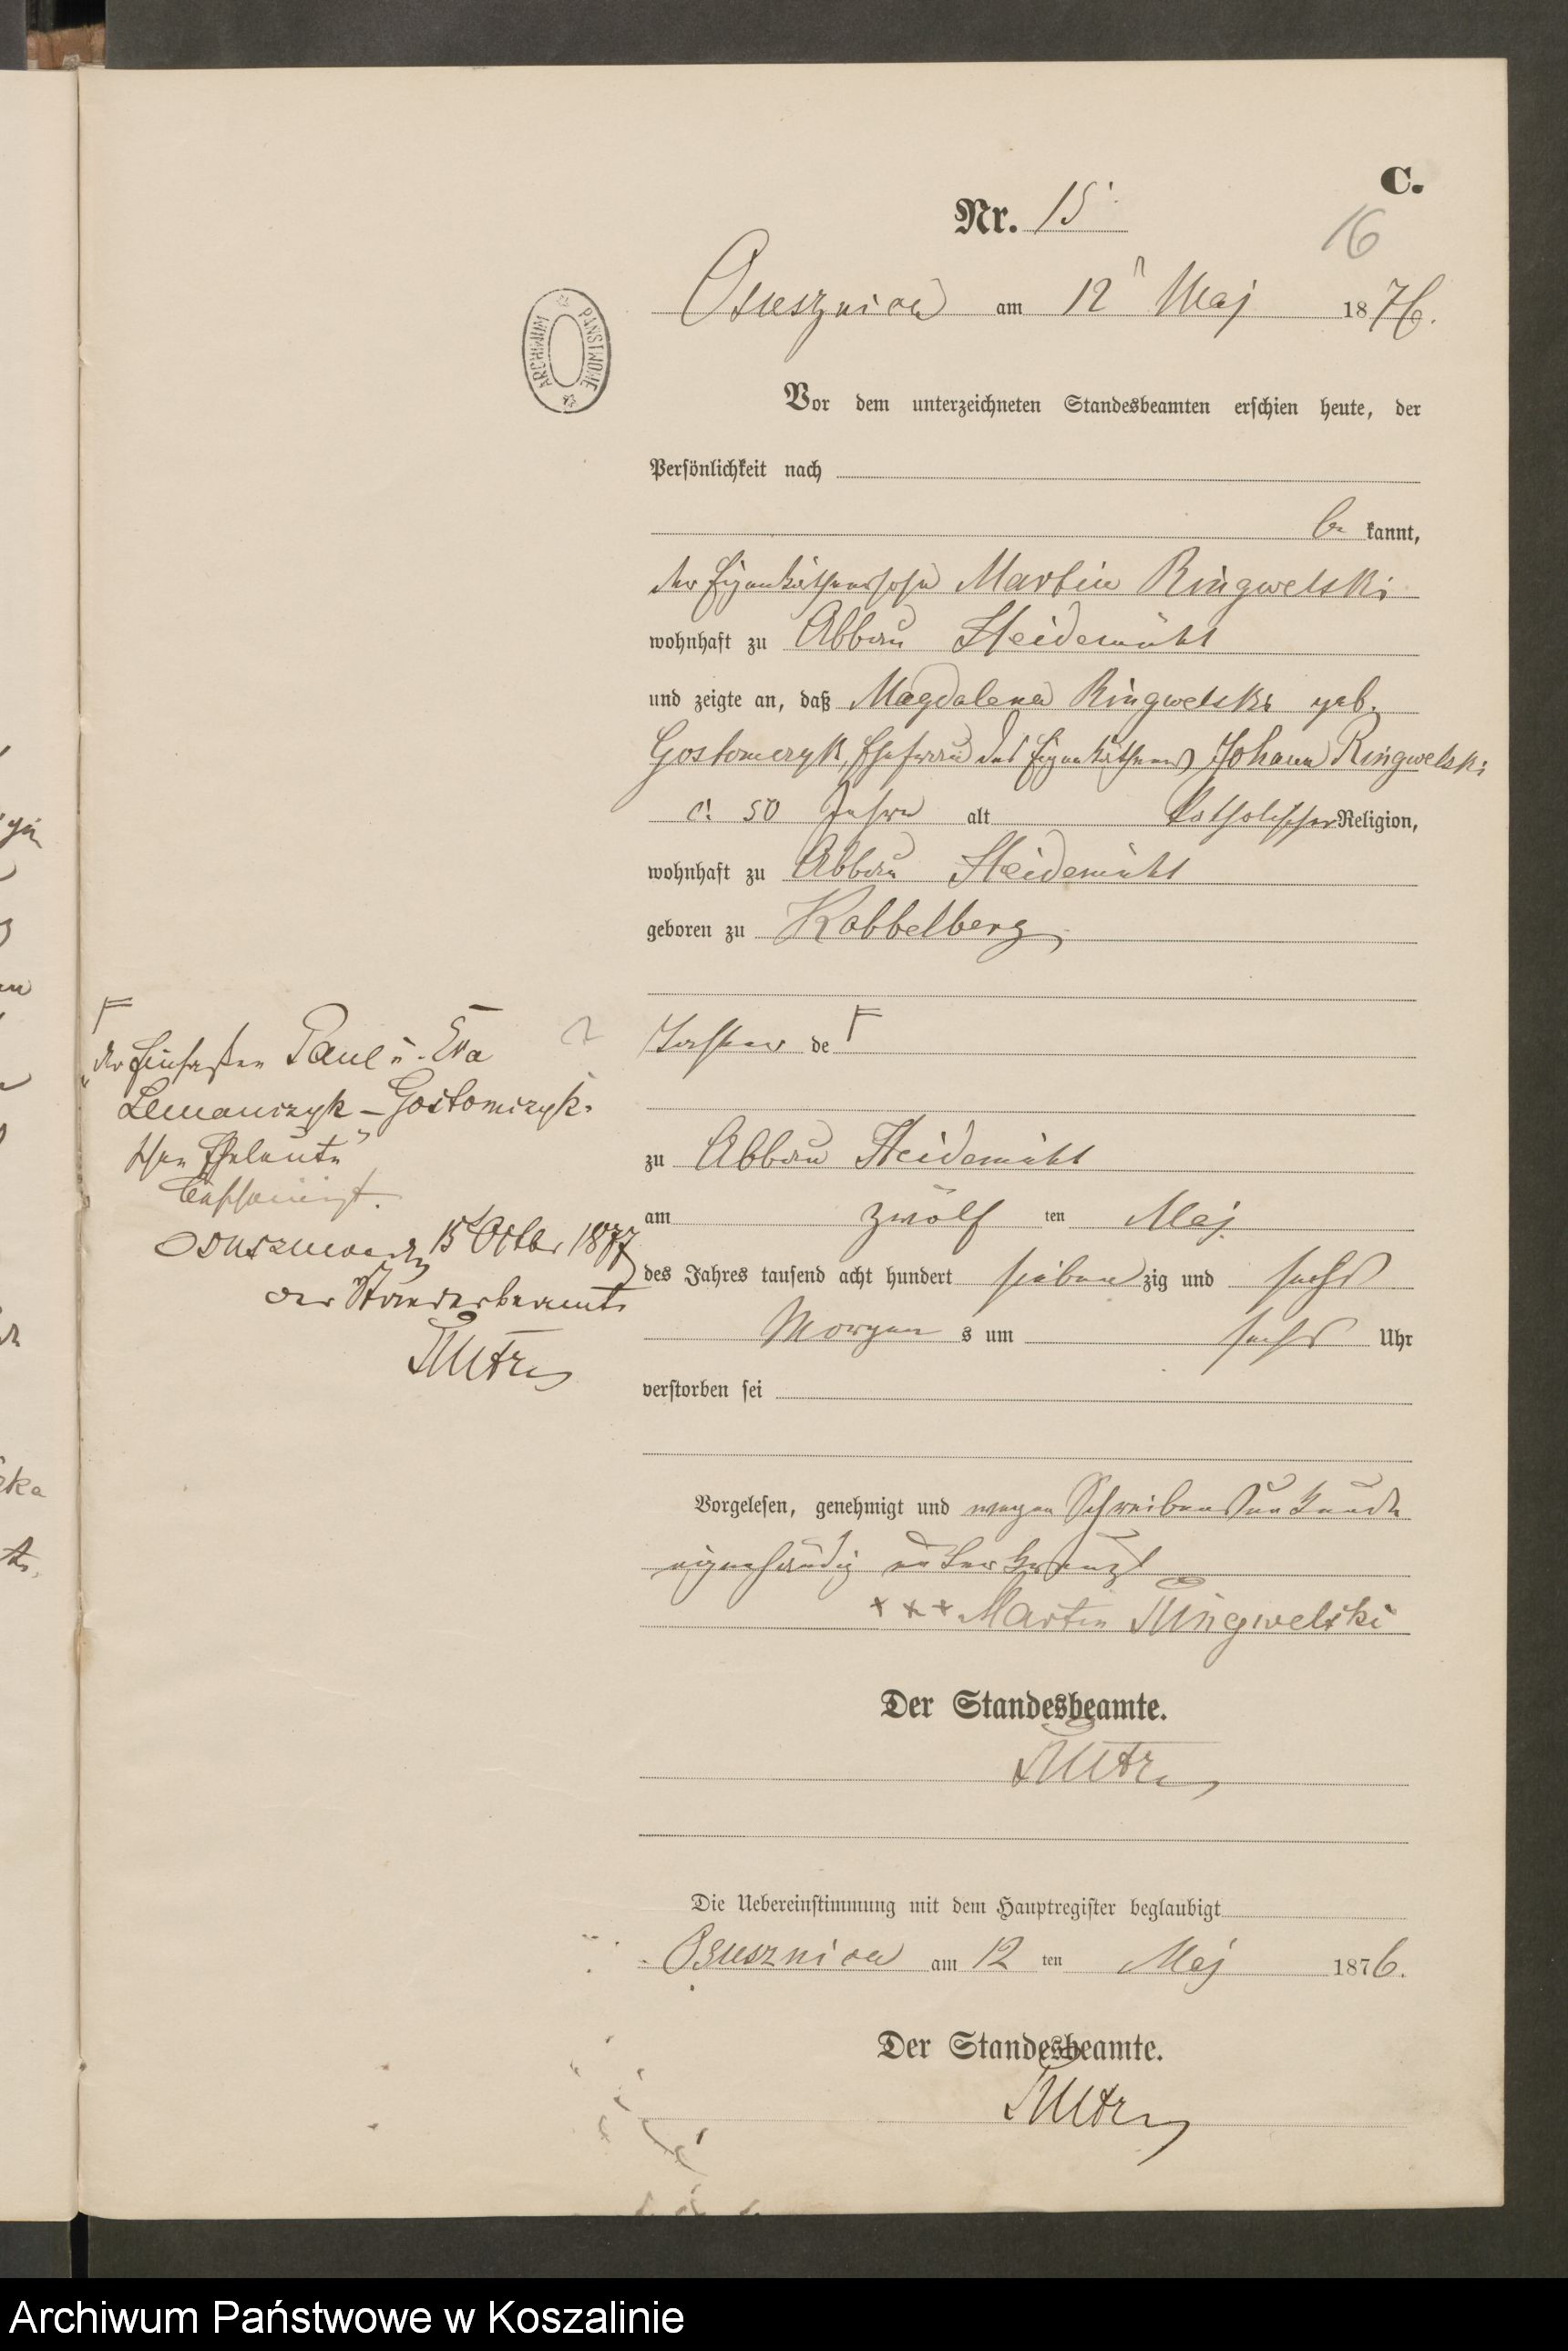 C.
Nr. 15
16
Osusznica am 12ᵗ Maj 1876.
Vor dem unterzeichneten Standesbeamten erschien heute, der
Persönlichkeit nach
be kannt,
der Eigenkäthnersohn Martin Ringwelski
wohnhaft zu Abbau Heidemühl
und zeigte an, daß Magdalena Ringwelski geb.
Gostomczyk, Ehefrau des Eigenkäthners Johann Ringwelski
c. 50 Jahre alt katholischer Religion,
wohnhaft zu Abbau Heidemühl
geboren zu Kabbelberg,
Tochter de F
zu Abbau Heidemühl
am zwölf ten Maj
des Jahres tausend acht hundert sieben zig und sechs
Morgen s um sechs Uhr
verstorben sei
Vorgelesen, genehmigt und wegen Schreibensunkunde
eigenhändig unterkreuzt
+++ Martin Ringwelski
Der Standesbeamte.
Die Uebereinstimmung mit dem Hauptregister beglaubigt
Osusznica am 12 ten Maj 1876.
Der Standesbeamte.
F
"der Einsaßen Paul u. Eva
Lemanczyk-Gostomczyk-
schen Eheleute"
Osusznica den 15 Octbr 1877
Der Standesbeamte
ARCHIWUM PAŃSTWOWE
Archiwum Państwowe w Koszalinie